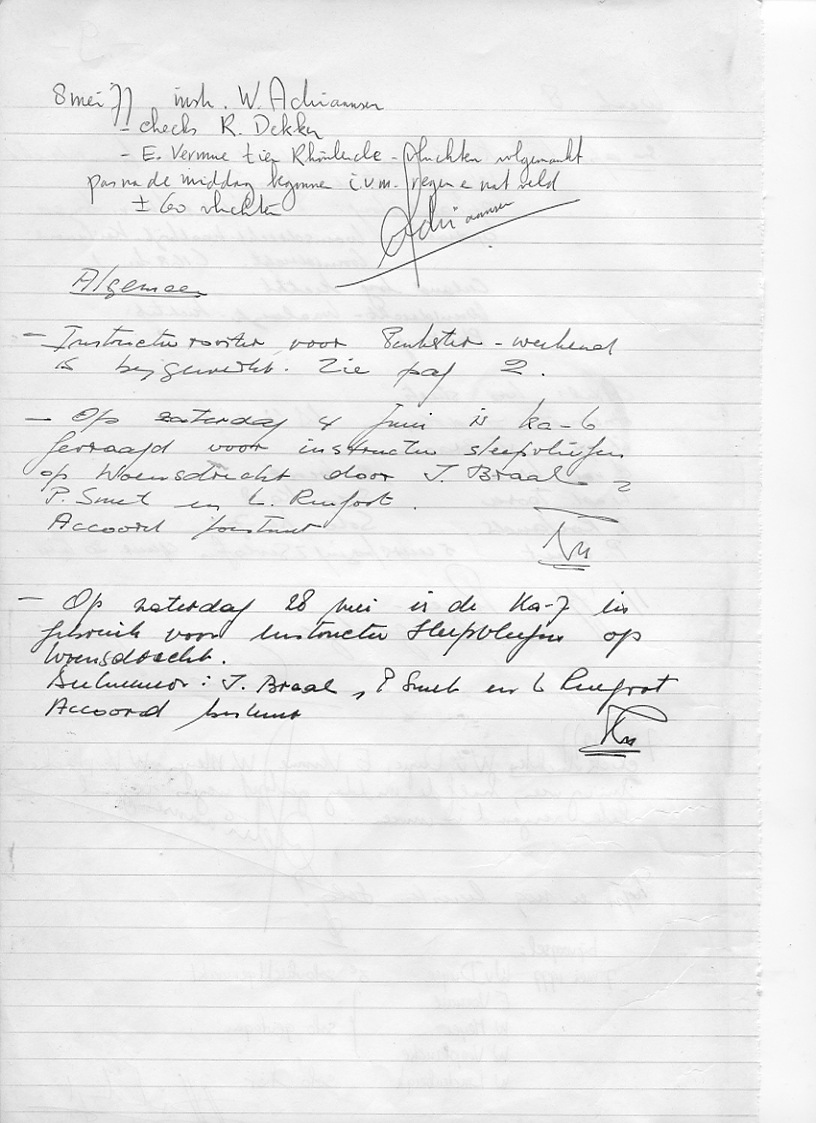 8 mei '77 instr. W. Adriaansen
- checks R. Dekker
- E. Vermue tien Rhönlerche - vluchten volgemaakt
pas na de middag begonnen i.v.m. regen e nat veld
± 60 vluchten
Adriaansen
Algemeen
- Instructie rooster voor Pinkster - weekend
is bijgewerkt. Zie pag 2.
- Op zaterdag 4 juni is Ka-6
gevraagd voor instructie sleepvliegen
op Woensdrecht door J. Braal
P. Smet en L.
Accoord bestuur
- Op zaterdag 28 mei is de Ka-7 in
gebruik voor instructie sleepvliegen op
Woensdrecht.
Deelnemer: J. Braal, P Smet en L
Accoord bestuur